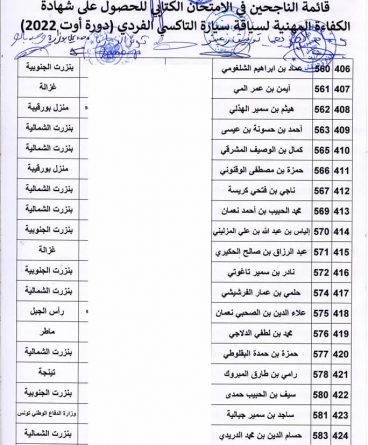 قائمة الناجحين في الامتحان الكتابي للحصول على شهادة
الكفاءة المهنية لسياقة سيارة التاكسي الفردي (دورة أوت 2022)
406 560 عماد بن ابراهيم الشلغومي بنزرت الجنوبية
407 561 أيمن بن عمر المي غزالة
408 562 هيثم بن سمير الهذلي منزل بورقيبة
409 563 أحمد بن حسونة بن عيسى بنزرت الشمالية
410 565 كمال بن الوصيف المشرقي بنزرت الشمالية
411 566 حمزة بن مصطفى الوقنوني منزل بورقيبة
412 567 ناجي بن فتحي كريسة بنزرت الشمالية
413 569 محمد الحبيب بن أحمد نعمان بنزرت الشمالية
414 570 إلياس بن عبد الله بن علي المزليني بنزرت الجنوبية
415 571 عبد الرزاق بن صالح الحكيري غزالة
416 572 نادر بن سمير تاغوتي بنزرت الجنوبية
417 574 حلمي بن عمار الفرشيشي بنزرت الشمالية
418 575 علاء الدين بن الصحبي نعمان رأس الجبل
419 576 محمد بن لطفي الدلاجي ماطر
420 577 حمزة بن حمدة البقلوطي بنزرت الشمالية
421 578 رامي بن طارق المبروك تينجة
422 580 سيف بن الحبيب حمدى بنزرت الجنوبية
423 581 ساجد بن سمير جبالية وزارة الدفاع الوطني تونس
424 583 حسام الدين بن محمد الدريدي بنزرت الشمالية